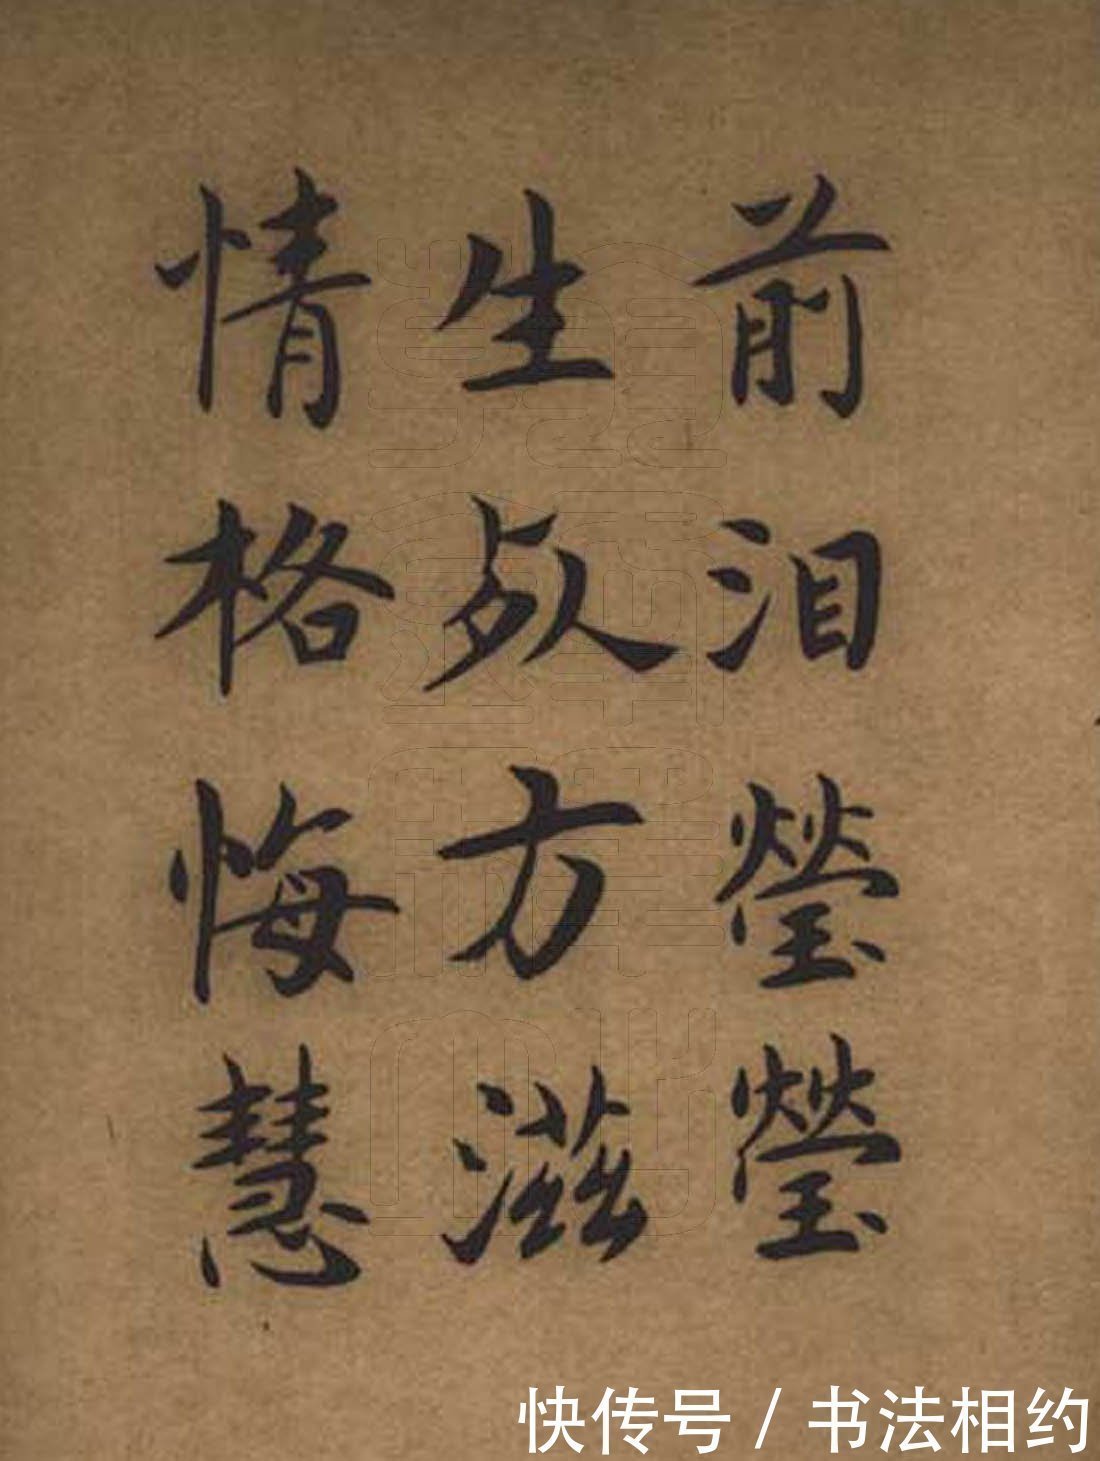 前泪瑩瑩
生死方滋
情格悔慧
快传号/书法相约